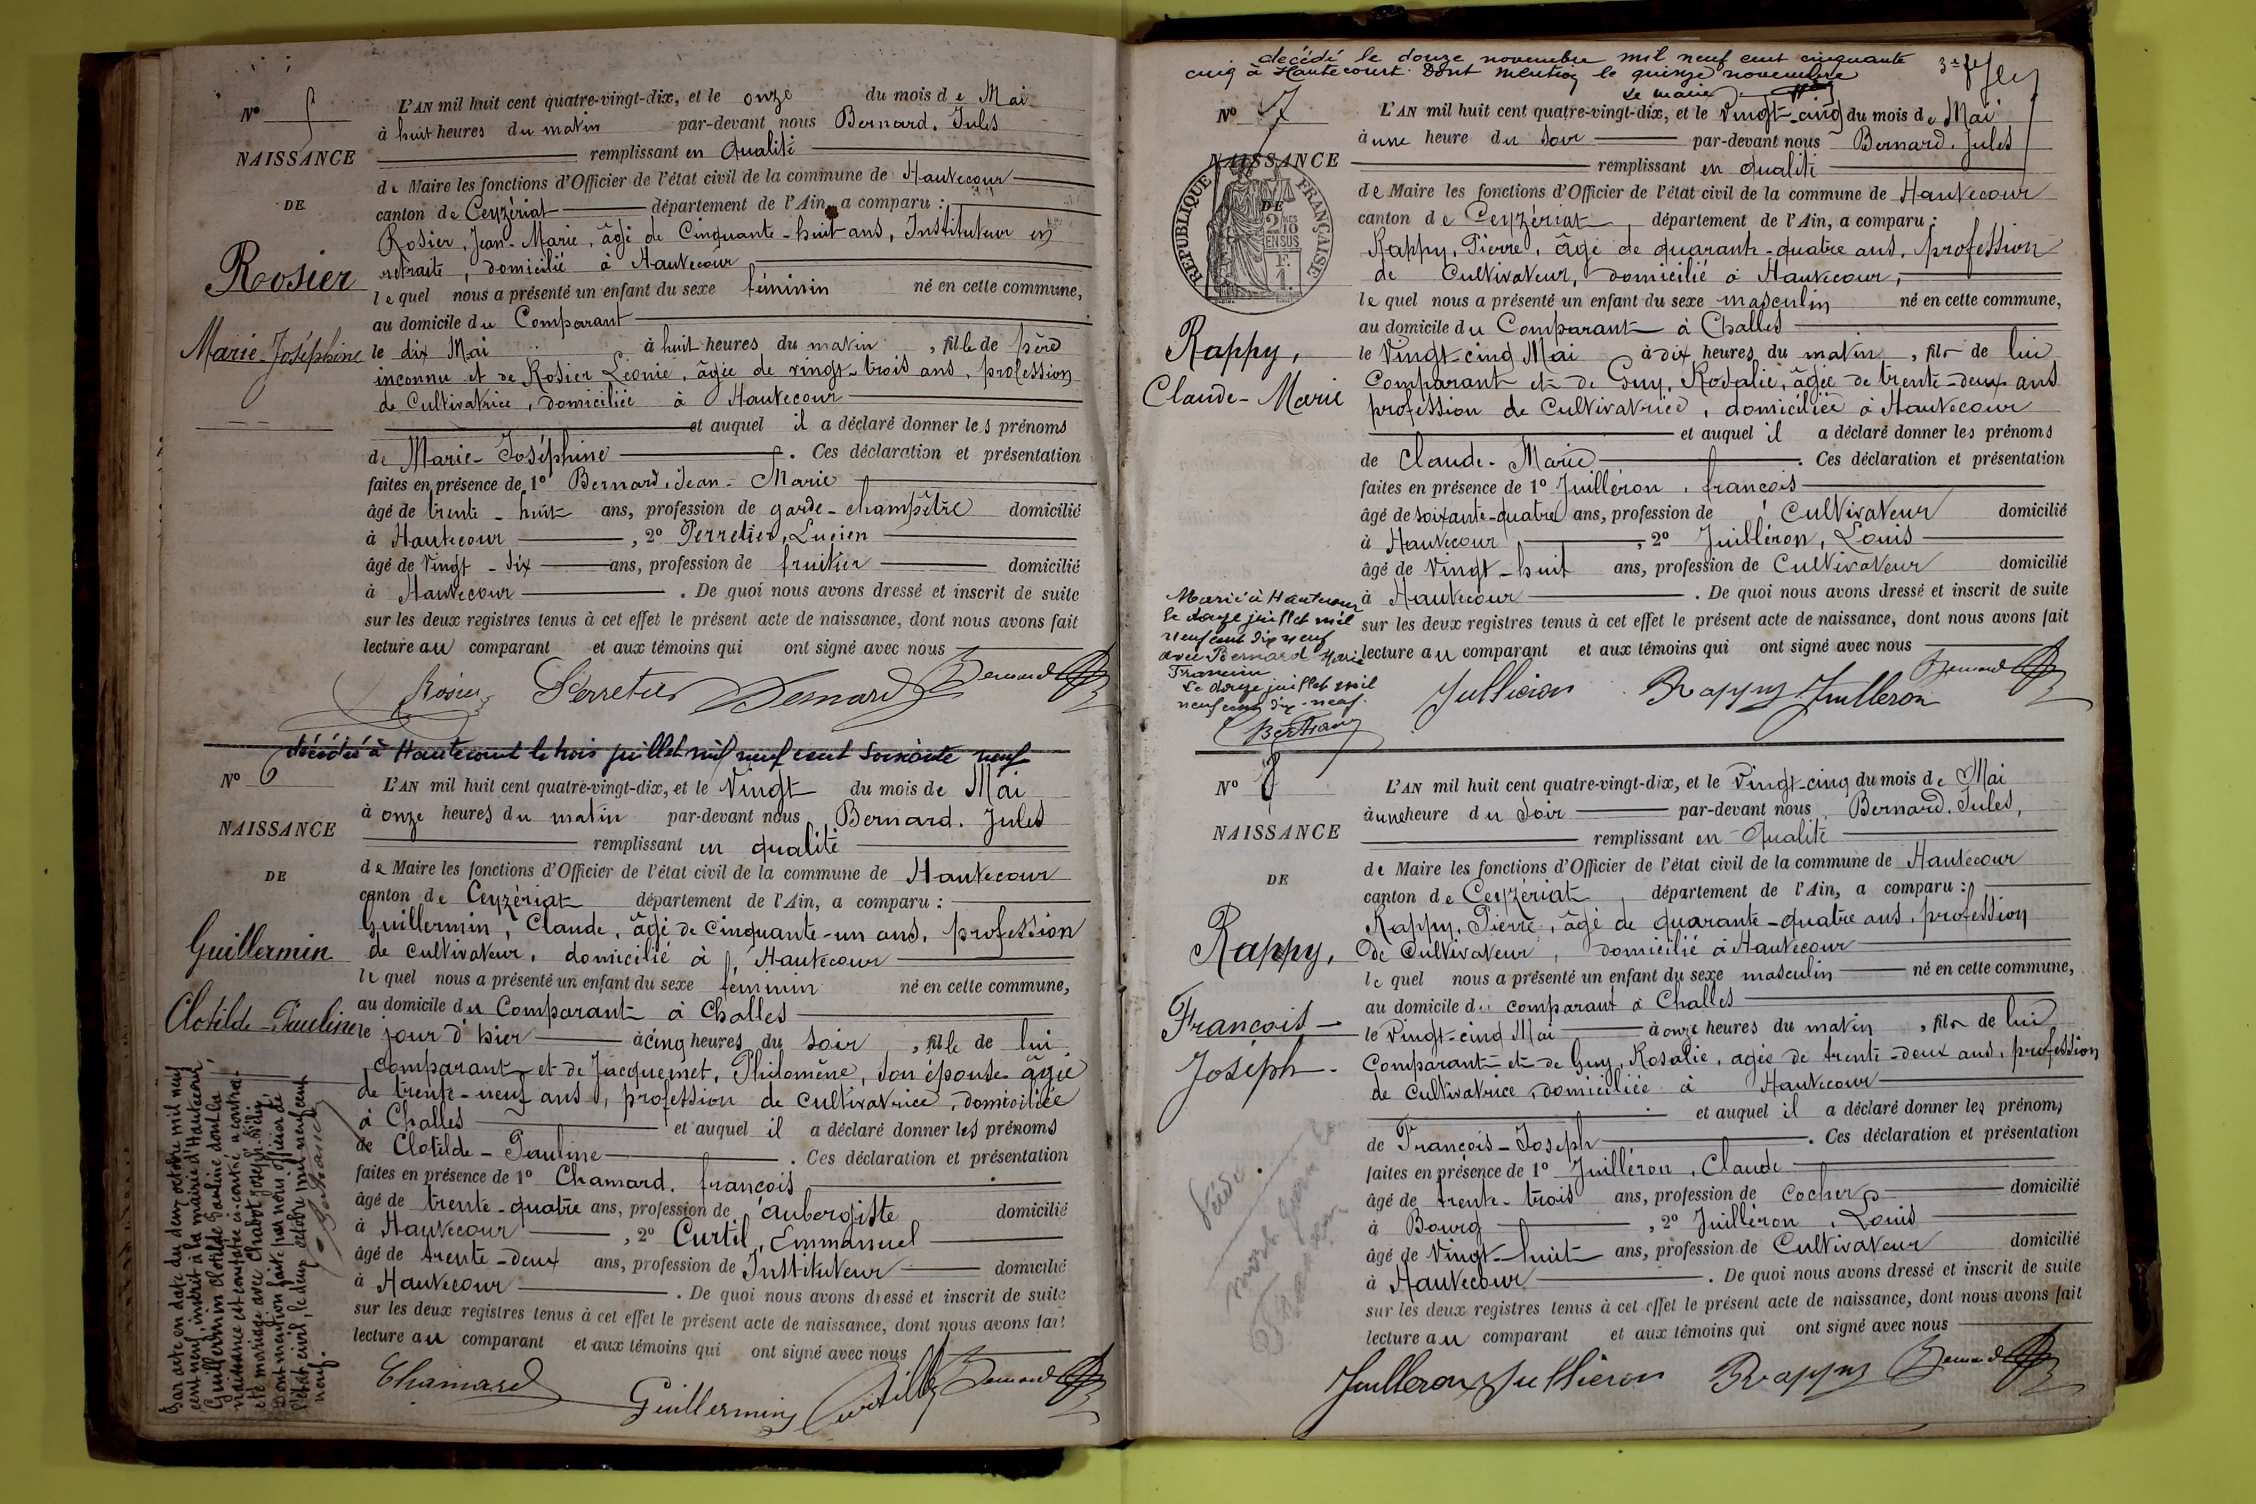 Nº 5
NAISSANCE
DE
Rosier
Marie-Joséphine
L'AN mil huit cent quatre-vingt-dix, et le onze du mois de Mai
à huit heures du matin par-devant nous Bernard, Jules
remplissant en qualité
de Maire les fonctions d'Officier de l'état civil de la commune de Hautecour
canton de Ceyzériat département de l'Ain, a comparu :
Rosier, Jean-Marie, âgé de Cinquante-huit ans, Instituteur en
retraite, domicilié à Hautecour
lequel nous a présenté un enfant du sexe féminin né en cette commune,
au domicile du Comparant
le dix Mai à huit heures du matin, fille de père
inconnu et de Rosier Léonie, âgée de vingt-trois ans, profession
de Cultivatrice, domiciliée à Hautecour
et auquel il a déclaré donner les prénoms
de Marie-Joséphine. Ces déclaration et présentation
faites en présence de 1º Bernard, Jean-Marie
âgé de trente-huit ans, profession de garde-champêtre domicilié
à Hautecour, 2º Perretier, Lucien
âgé de Vingt-dix ans, profession de fruitier domicilié
à Hautecour. De quoi nous avons dressé et inscrit de suite
sur les deux registres tenus à cet effet le présent acte de naissance, dont nous avons fait
lecture au comparant et aux témoins qui ont signé avec nous
Rosier Perretier Bernard Bernard
décédée à Hautecourt le trois juillet mil neuf cent soixante neuf
Nº 6
NAISSANCE
DE
Guillermin
Clotilde-Pauline
L'AN mil huit cent quatre-vingt-dix, et le Vingt du mois de Mai
à onze heures du matin par-devant nous Bernard, Jules
remplissant en qualité
de Maire les fonctions d'Officier de l'état civil de la commune de Hautecour
canton de Ceyzériat département de l'Ain, a comparu :
Guillermin, Claude, âgé de Cinquante-un ans, profession
de cultivateur, domicilié à Hautecour
lequel nous a présenté un enfant du sexe féminin né en cette commune,
au domicile du Comparant à Challes
le jour d'hier à cinq heures du soir, fille de lui
comparant et de Jacquemet, Philomène, son épouse âgée
de trente-neuf ans, profession de cultivatrice, domiciliée
à Challes et auquel il a déclaré donner les prénoms
de Clotilde-Pauline. Ces déclaration et présentation
faites en présence de 1º Chamard, françois
âgé de trente-quatre ans, profession de aubergiste domicilié
à Hautecour, 2º Curtil, Emmanuel
âgé de trente-deux ans, profession de Instituteur domicilié
à Hautecour. De quoi nous avons dressé et inscrit de suite
sur les deux registres tenus à cet effet le présent acte de naissance, dont nous avons fait
lecture au comparant et aux témoins qui ont signé avec nous
Chamard Guillermin Curtil Bernard
Par acte en date du deux octobre mil neuf
cent neuf, inscrit à la mairie d'Hautecour,
Guillermin Clotilde Pauline dont la
naissance est constatée ci-contre a contrac-
té mariage avec Chabot Joseph
Dont mention faite par nous officier de
l'état civil, le deux octobre mil neuf cent
neuf.
décédé le douze novembre mil neuf cent cinquante
cinq à Hautecourt. Dont mention le quinze novembre
Le maire
Nº 7
NAISSANCE
DE
RÉPUBLIQUE FRANÇAISE
Rappy,
Claude-Marie
L'AN mil huit cent quatre-vingt-dix, et le Vingt-cinq du mois de Mai
à une heure du soir par-devant nous Bernard, Jules
remplissant en qualité
de Maire les fonctions d'Officier de l'état civil de la commune de Hautecour
canton de Ceyzériat département de l'Ain, a comparu :
Rappy, Pierre, âgé de quarante-quatre ans, profession
de Cultivateur, domicilié à Hautecour,
lequel nous a présenté un enfant du sexe masculin né en cette commune,
au domicile du Comparant à Challes
le Vingt-cinq Mai à dix heures du matin, fils de lui
Comparant et de Guy, Rosalie, âgée de trente-deux ans
profession de Cultivatrice, domiciliée à Hautecour
et auquel il a déclaré donner les prénoms
de Claude-Marie. Ces déclaration et présentation
faites en présence de 1º Juilléron, françois
âgé de soixante-quatre ans, profession de Cultivateur domicilié
à Hautecour, 2º Juilléron, Louis
âgé de Vingt-huit ans, profession de Cultivateur domicilié
à Hautecour. De quoi nous avons dressé et inscrit de suite
sur les deux registres tenus à cet effet le présent acte de naissance, dont nous avons fait
lecture au comparant et aux témoins qui ont signé avec nous
Jullieron Rappy Juilleron Bernard
Marié à Hautecour
le douze juillet mil
neuf cent dix neuf
avec Bernard Marie
Le douze juillet mil
neuf cent dix-neuf.
Nº 8
NAISSANCE
DE
Rappy,
François-
Joseph-
L'AN mil huit cent quatre-vingt-dix, et le Vingt-cinq du mois de Mai
à une heure du soir par-devant nous Bernard, Jules,
remplissant en qualité
de Maire les fonctions d'Officier de l'état civil de la commune de Hautecour
canton de Ceyzériat département de l'Ain, a comparu :
Rappy, Pierre, âgé de quarante-quatre ans, profession
de Cultivateur, domicilié à Hautecour
lequel nous a présenté un enfant du sexe masculin né en cette commune,
au domicile du comparant à Challes
le Vingt-cinq Mai à onze heures du matin, fils de lui
Comparant et de Guy, Rosalie, agée de trente-deux ans, profession
de cultivatrice, domiciliée à Hautecour
et auquel il a déclaré donner les prénoms
de François-Joseph. Ces déclaration et présentation
faites en présence de 1º Juilléron, Claude
âgé de trente-trois ans, profession de cocher domicilié
à Bourg, 2º Juilléron, Louis
âgé de Vingt-huit ans, profession de Cultivateur domicilié
à Hautecour. De quoi nous avons dressé et inscrit de suite
sur les deux registres tenus à cet effet le présent acte de naissance, dont nous avons fait
lecture au comparant et aux témoins qui ont signé avec nous
Juilleron Jullieron Rappy Bernard